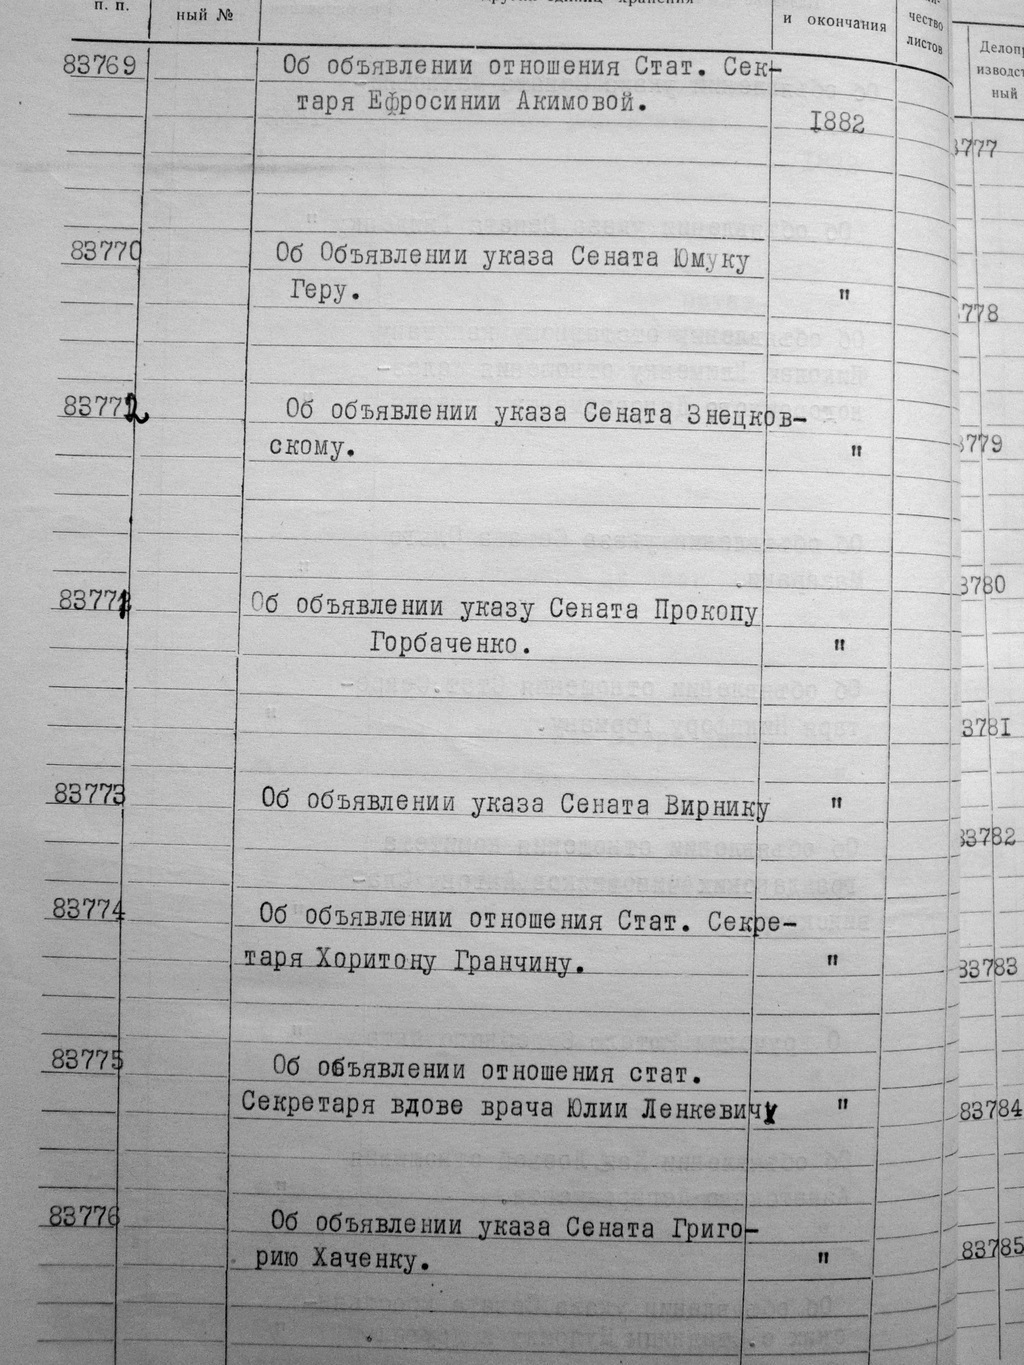 п. п.
ный №
и окончания
чество
листов
изводст
ный
83769 Об объявлении отношения Стат. Сек-
таря Ефросинии Акимовой.
1882
83770 Об Объявлении указа Сената Юмуку
Геру. "
83772 Об объявлении указа Сената Знецков-
скому. "
83771 Об объявлении указу Сената Прокопу
Горбаченко. "
83773 Об объявлении указа Сената Вирнику "
83774 Об объявлении отношения Стат. Секре-
таря Хоритону Гранчину. "
83775 Об объявлении отношения стат.
Секретаря вдове врача Юлии Ленкевич "
83776 Об объявлении указа Сената Григо-
рию Хаченку. "
3777
3778
3779
3780
3781
83782
83783
83784
83785